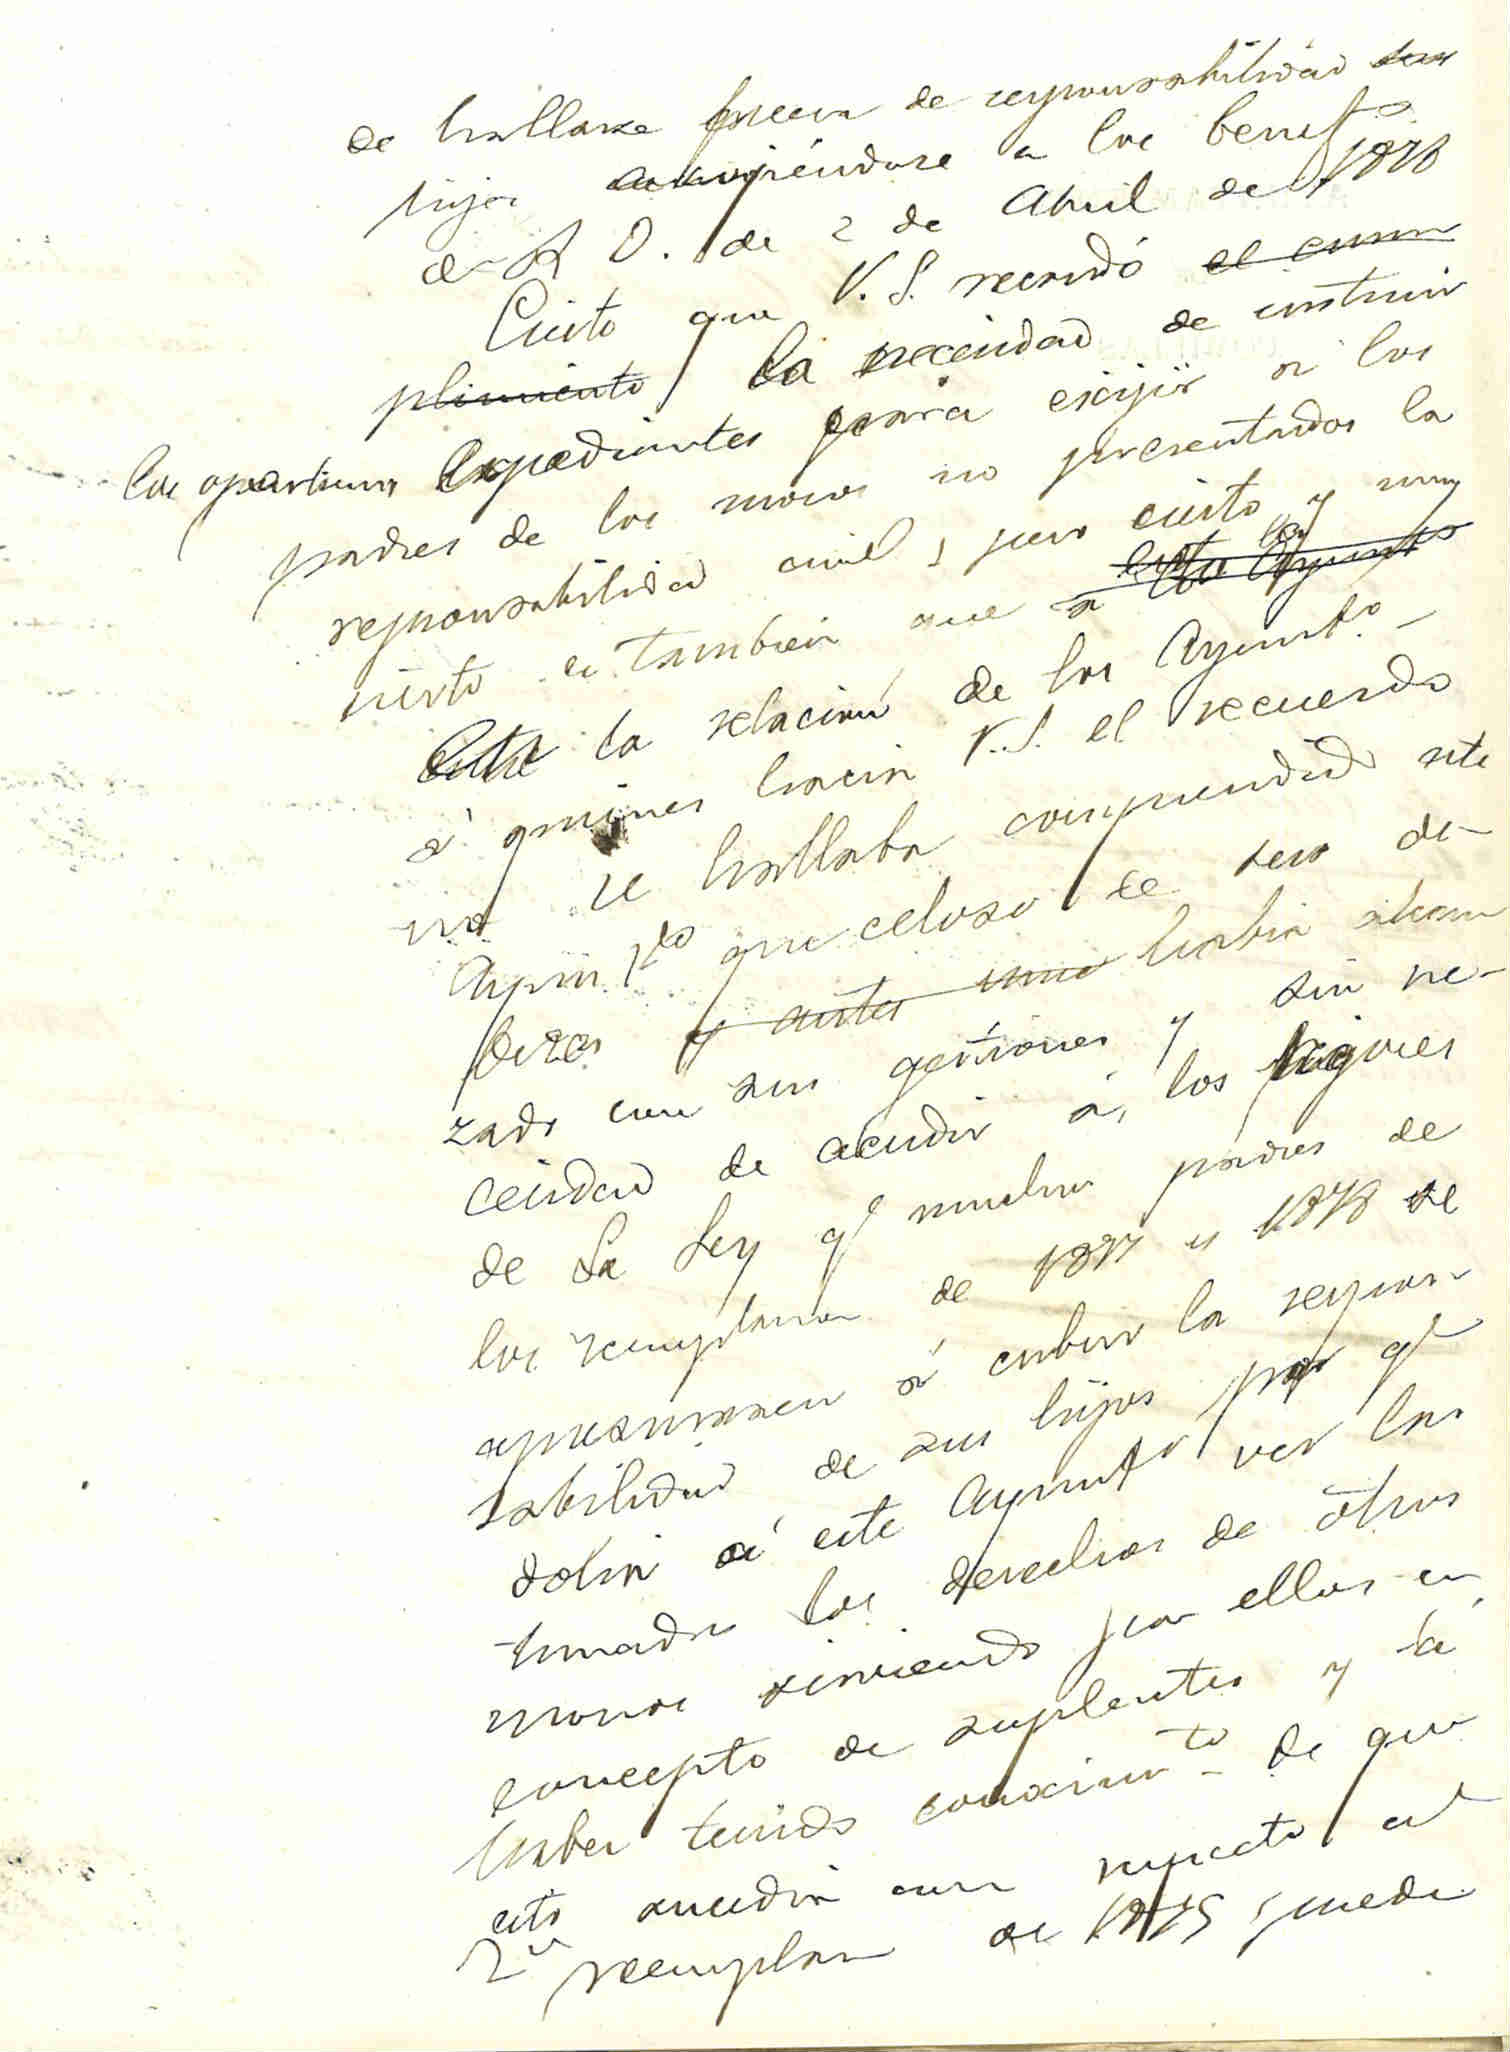 de hallarse fuera de responsabilidad sus
hijos acojiéndose a los benefos
del R D. de 2 de Abril de 1878
Cierto que V. S. recordó el cum
plimiento la necesidad de instruir
los oportunos Expedientes para exijir a los
padres de los mozos no presentados la
responsabilidad civil, pero cierto y muy
cierto es tambien que a esta Ayunto
Entre la relación de los Ayuntos
á quienes hacia V.S. el recuerdo
no se hallaba comprendido este
Ayunto que celoso de sus de-
beres y antes habia alcan
zado con sus gestiones y sin ne-
cesidad de acudir á los rigores
de la Ley qe muchos padres de
los reemplazos de 1877 y 1878 se
apresurasen á cubrir la respon
sabilidad de sus hijos por qe
dolia á este Ayunto ver las
timados los derechos de otros
mozos sirviendo por ellos en
concepto de suplentes y á
haber tenido conocimto de que
esto sucedia con respecto al
2º reemplazo de 1875 puede